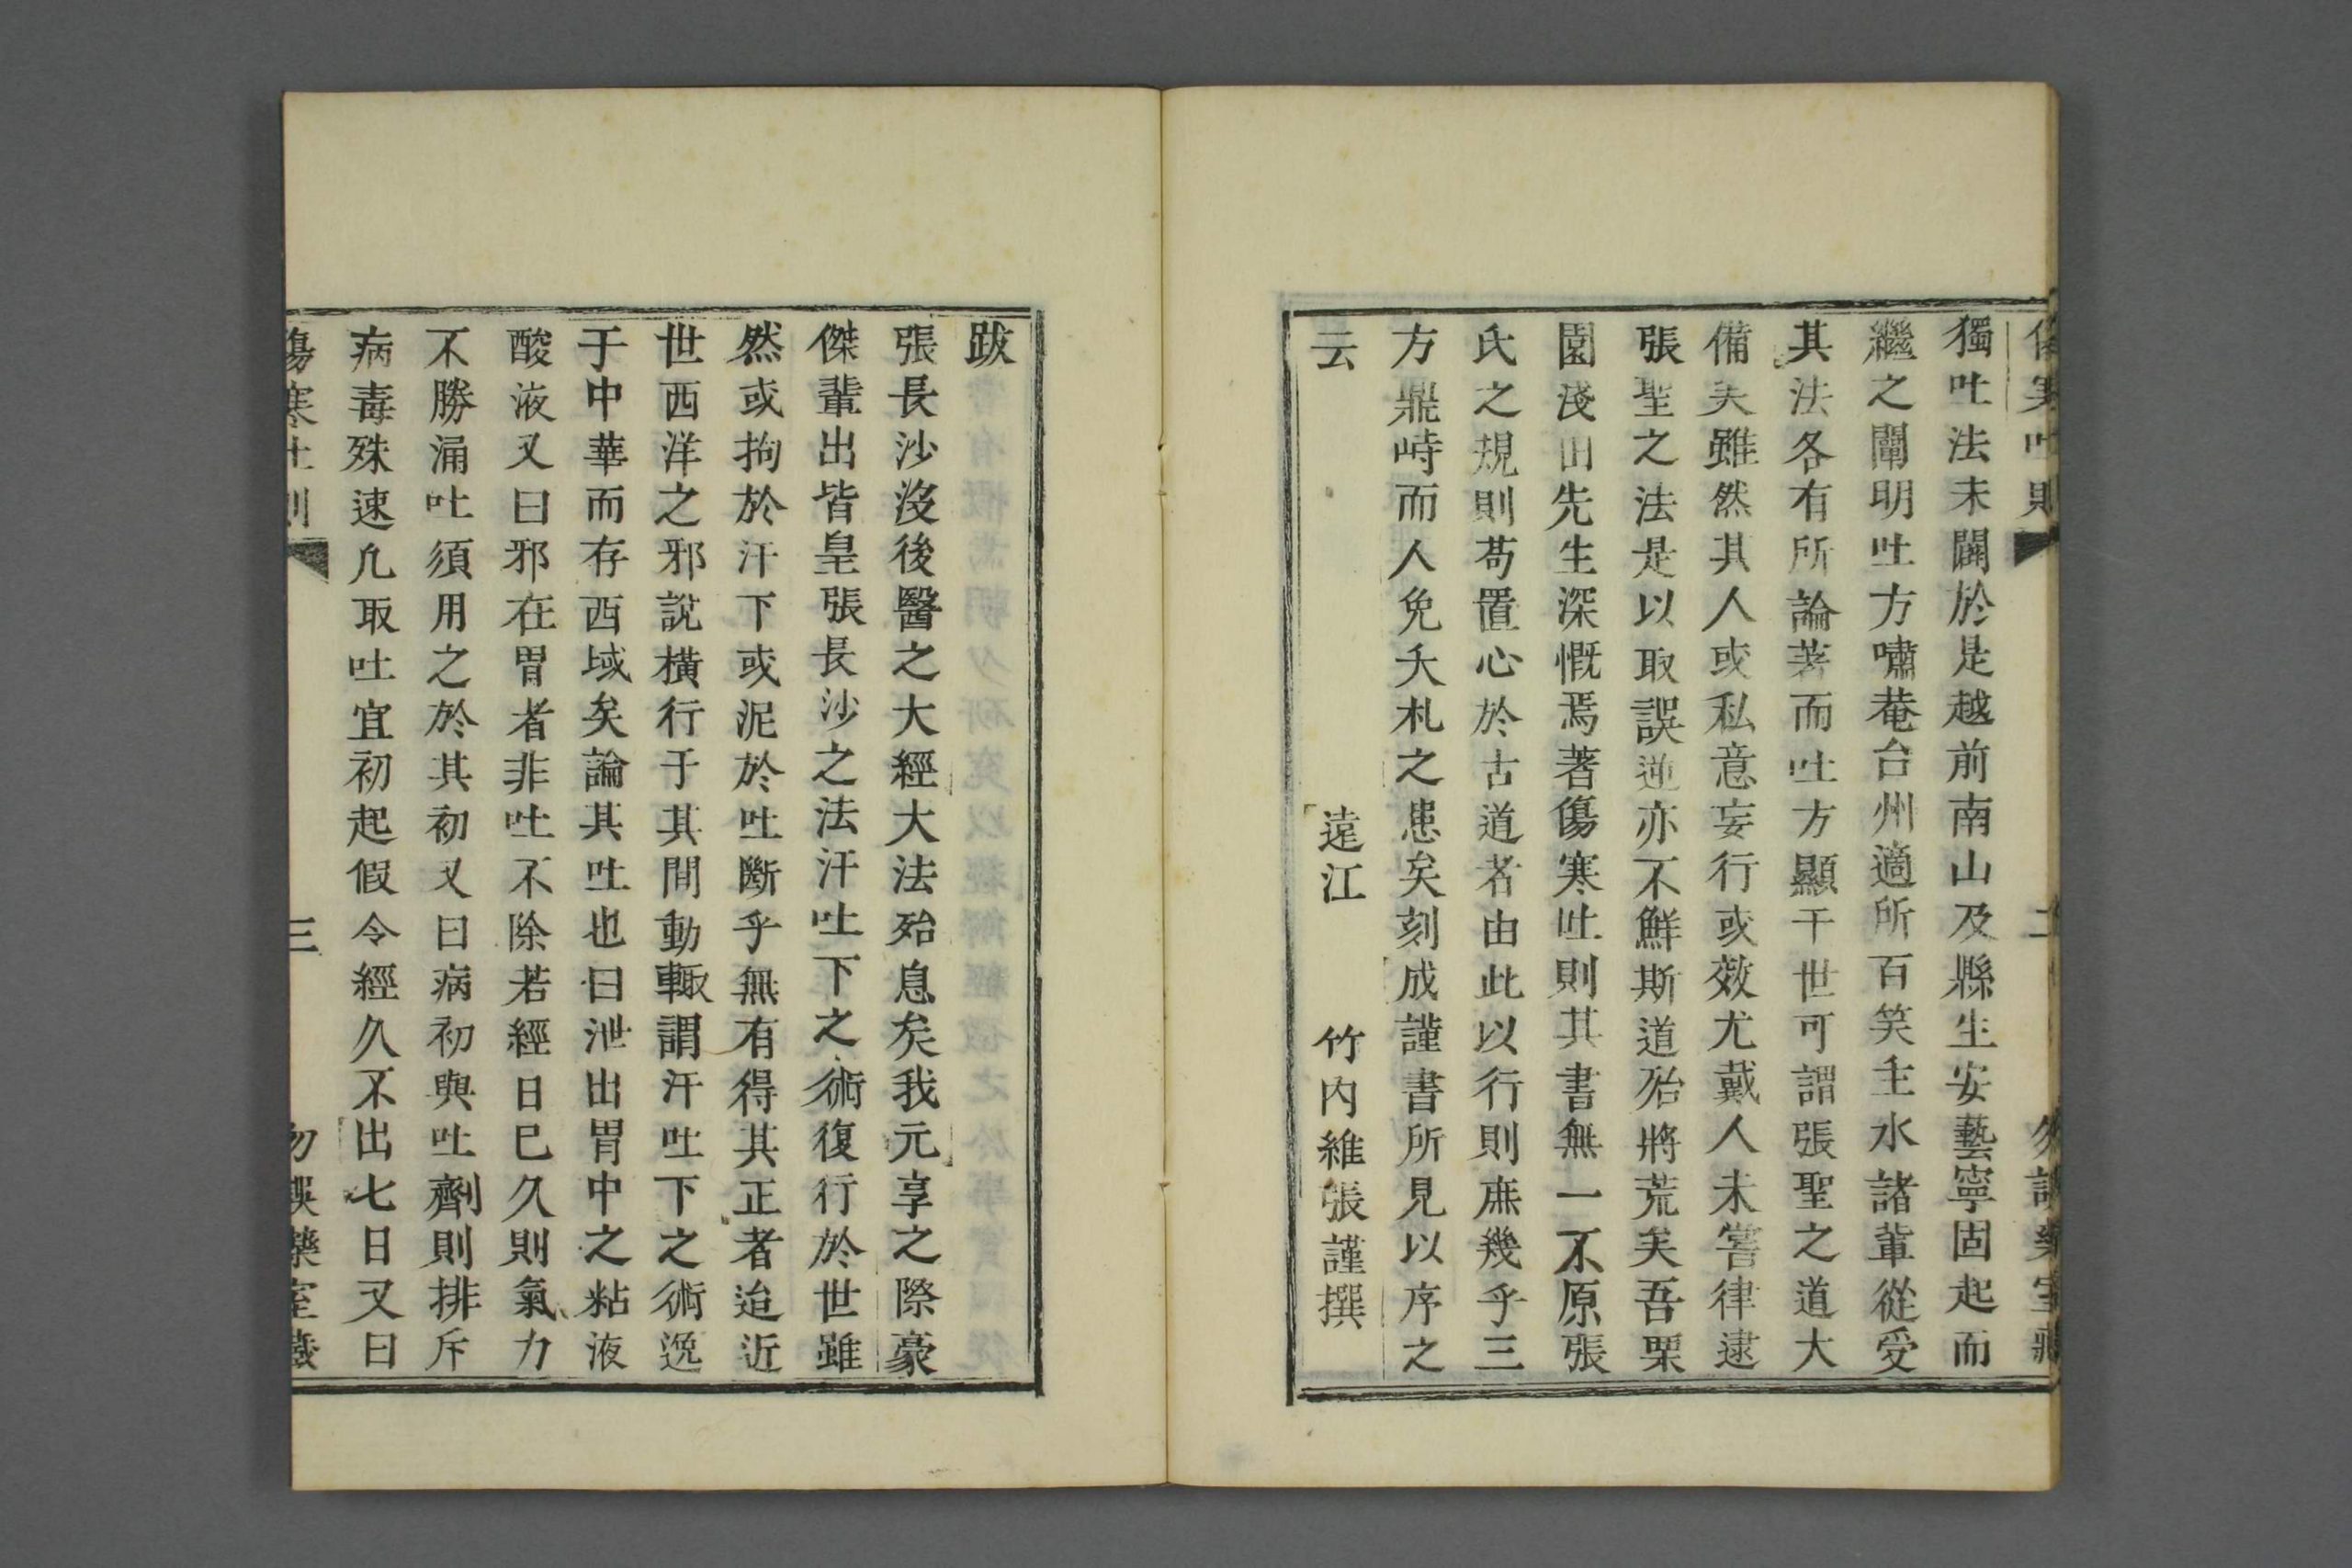 傷寒吐則 二 勿誤藥室藏
獨吐法未闢於是越前南山及縣生安藝寧固起而
繼之闡明吐方嘯菴台州適所百笑主水諸輩從受
其法各有所論著而吐方顯干世可謂張聖之道大
備矣雖然其人或私意妄行或效尤戴人未嘗律逮
張聖之法是以取誤逆亦不鮮斯道殆將荒矣吾栗
園淺田先生深慨焉著傷寒吐則其書無一不原張
氏之規則苟置心於古道者由此以行則庶幾乎三
方鼎峙而人免夭札之患矣刻成謹書所見以序之
云
遠江 竹內維張謹撰
跋
張長沙沒後醫之大經大法殆息矣我元享之際豪
傑輩出皆皇張長沙之法汗吐下之術復行於世雖
然或拘於汗下或泥於吐斷乎無有得其正者迨近
世西洋之邪說橫行于其間動輙謂汗吐下之術逸
于中華而存西域矣論其吐也曰泄出胃中之粘液
酸液又曰邪在胃者非吐不除若經日巳久則氣力
不勝涌吐須用之於其初又曰病初與吐劑則排斥
病毒殊速凡取吐宜初起假令經久不出七日又曰
傷寒吐則 三 勿誤藥室藏